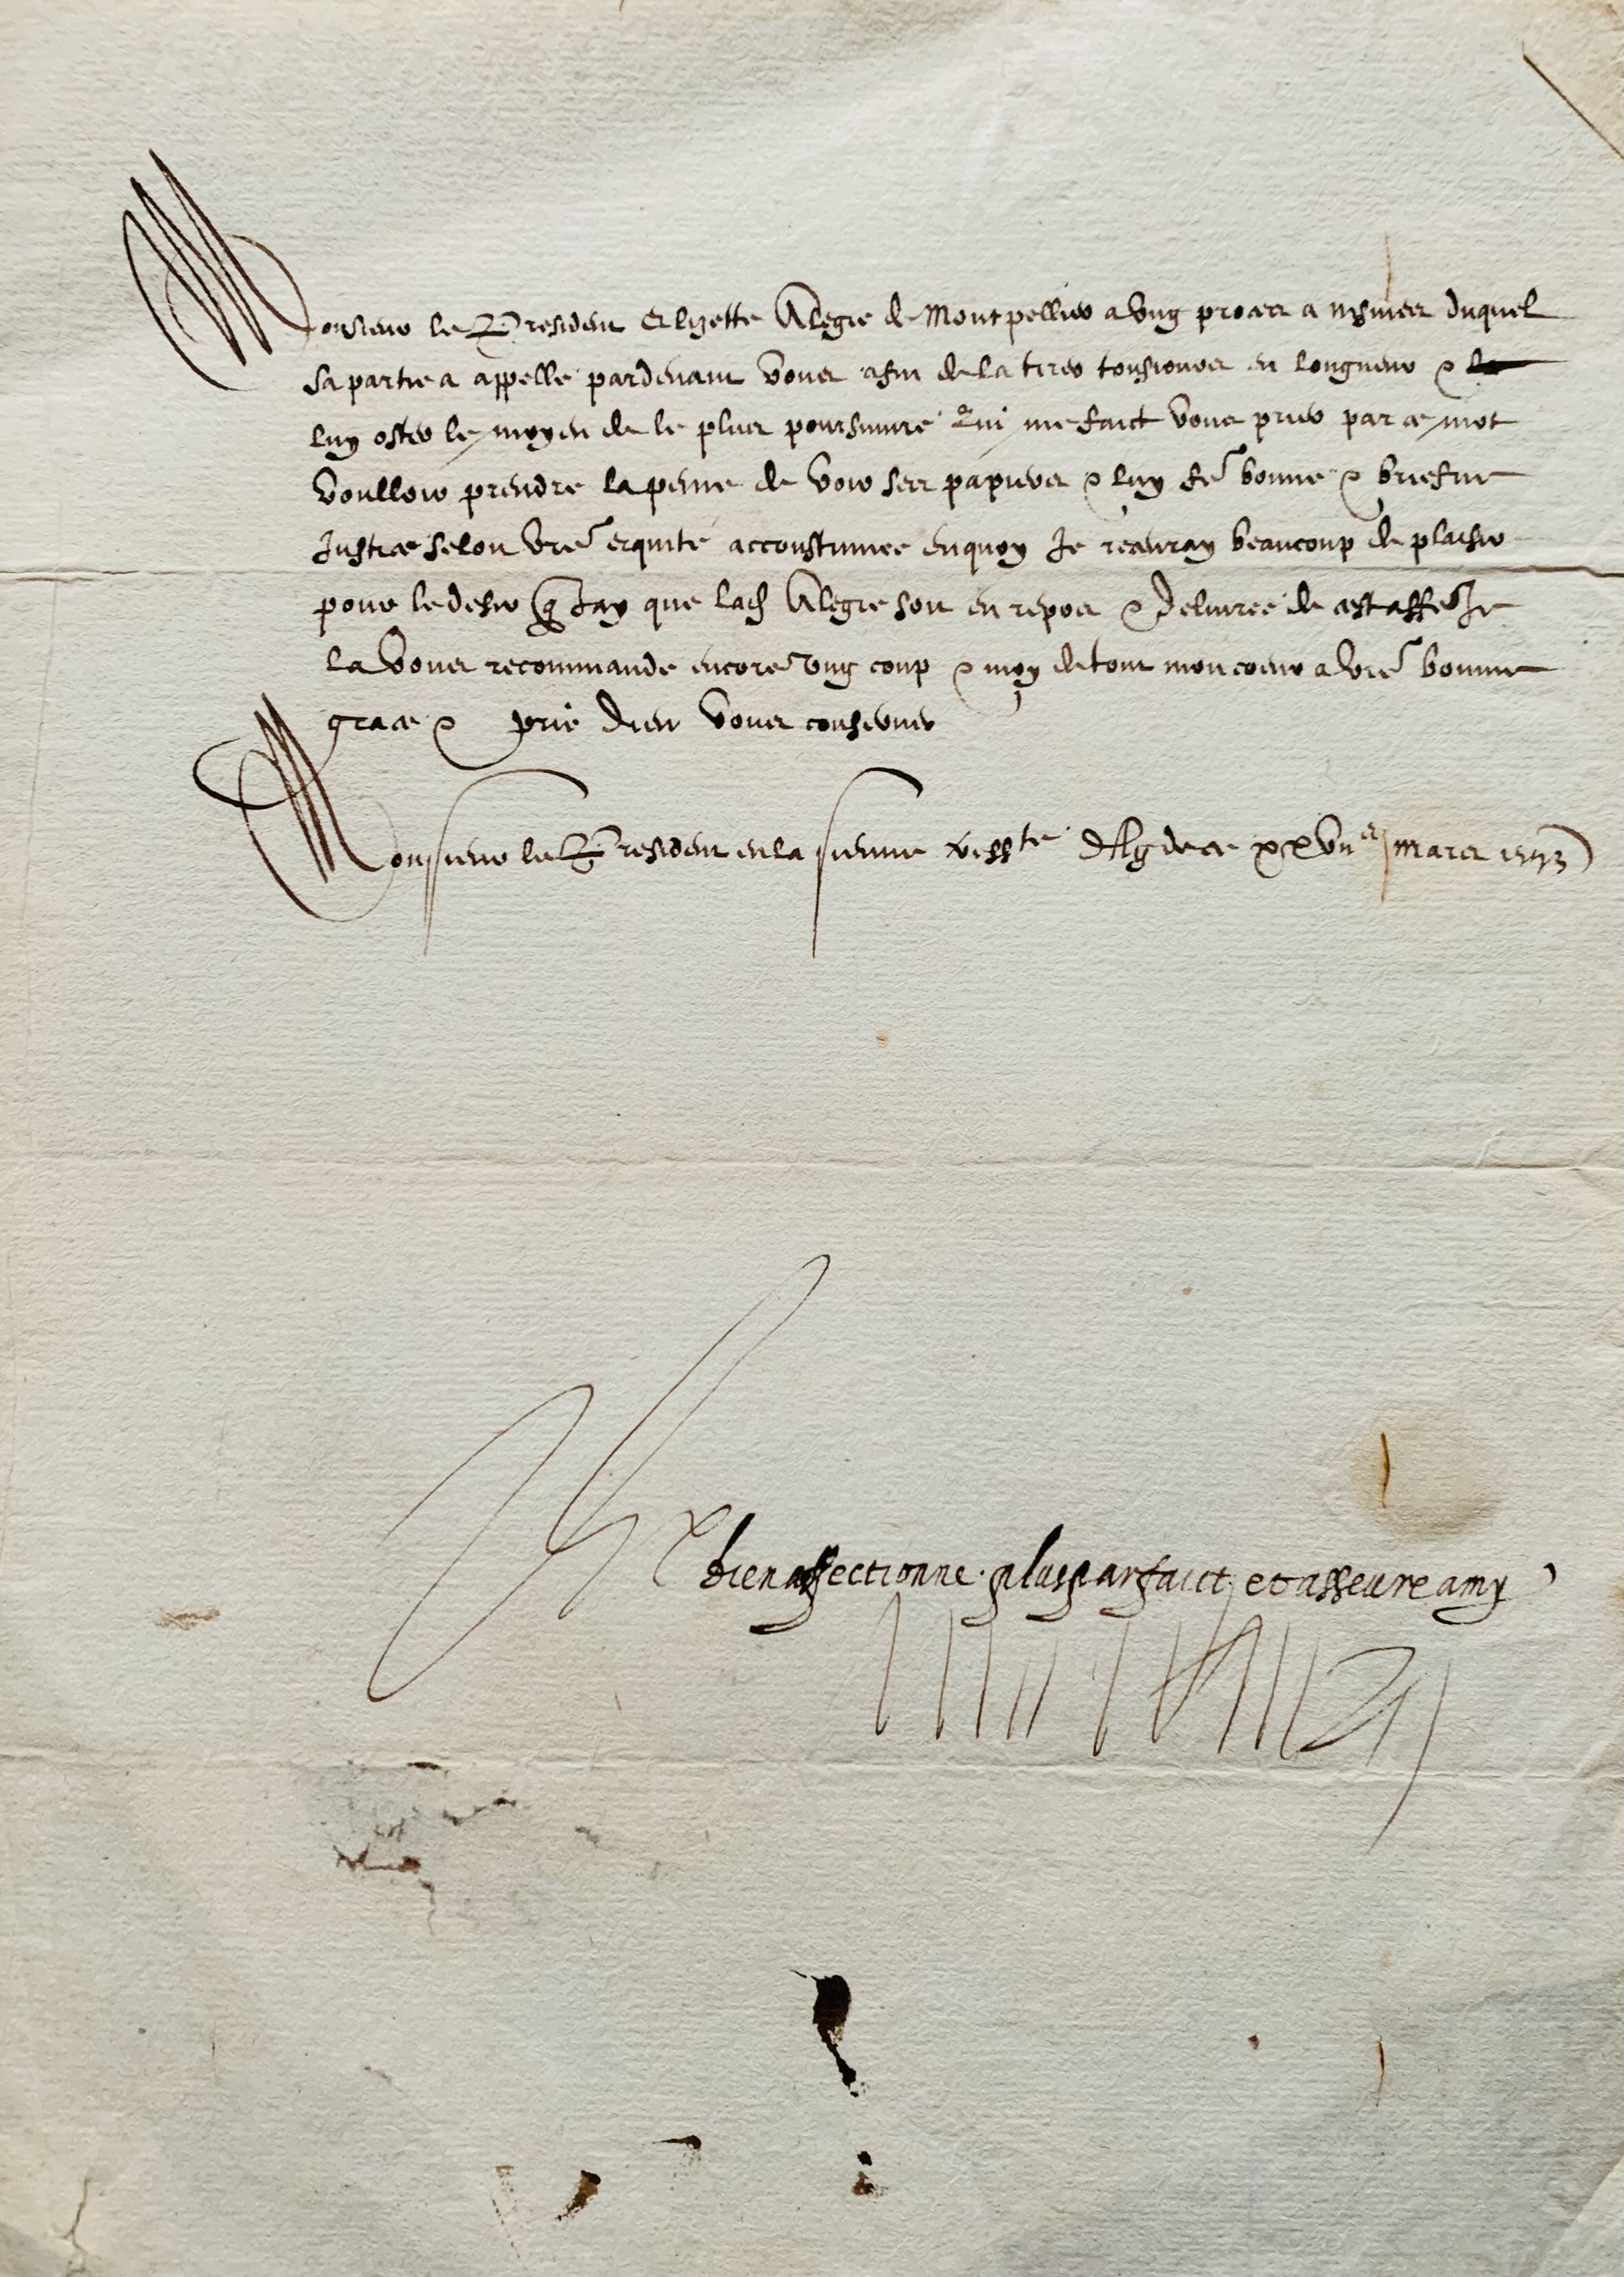 Monsieur le President Elizette Alegre de Montpellier a ung proces a nysmes duquel
sa partie a appelle pardevant vous afin de la tirer tousjours en longueur &
luy oster le moyen de le plus poursuivre Qui me faict vous prier par ce mot
voulloir prendre la peine de voir ses papiers & luy fe͞ bonne & briefve
Justice selon vr͞e equité accoustumee enquoy Je recevray beaucoup de plaisir
pour le desir q͞ Jay que lad Alegre soit en repos & delivree de cest affe͞ Je
la vous recommande encores ung coup & moy de tout mon coeur a vr͞e bonne
grace & prie dieu vous conserver
Monsieur le President en la sienne De Agde ce mars
bien affectionne plus parfaict et asseure amy